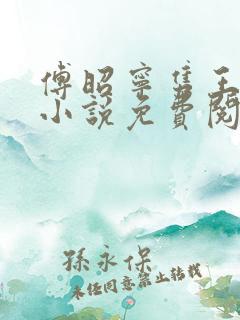 傅昭寧隽王
小說免費閱
孫永保
未經同意禁止轉載